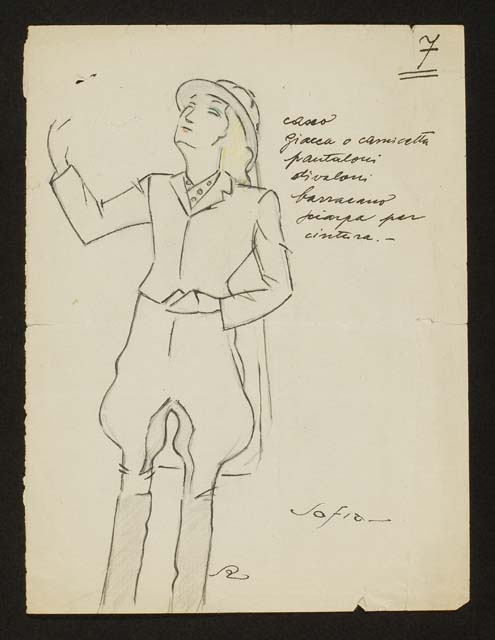 7
casco
giacca o camicetta
pantaloni
stivaloni
barracano
sciarpa per
cintura. -
Sofia